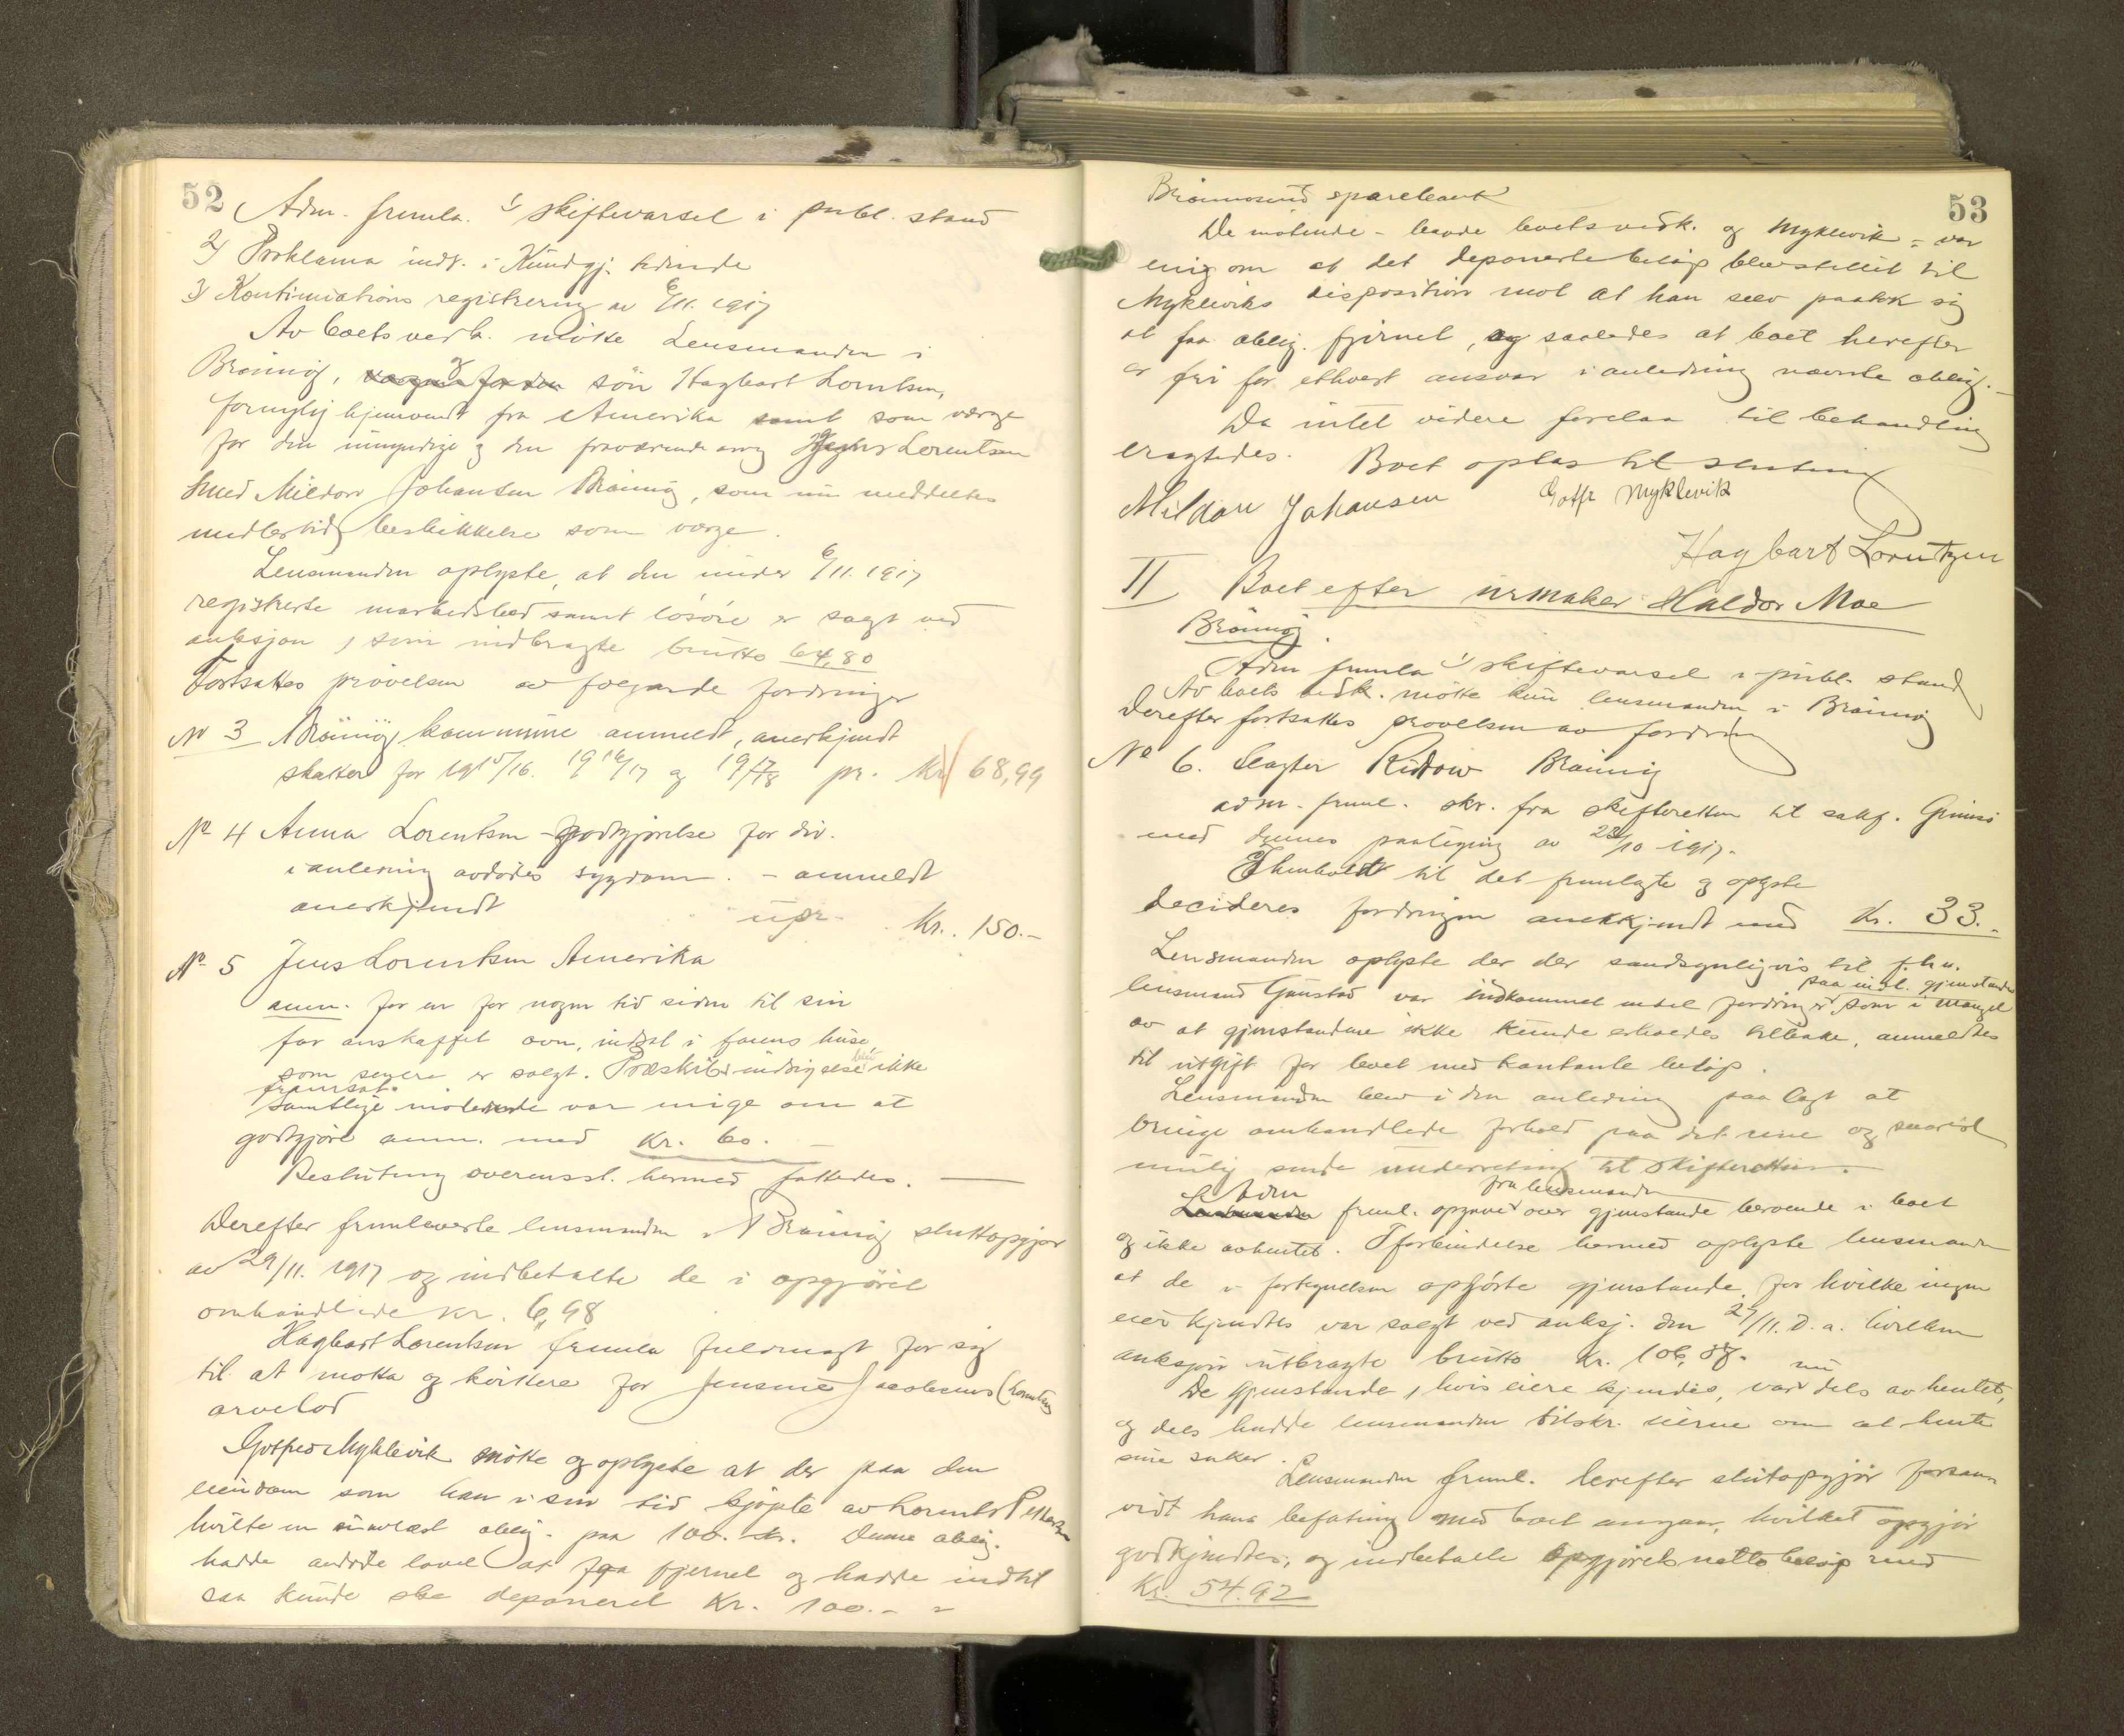 52
Adm. fremla. 1/ skiftevarsel i publ. stand
2/ Proklama indr. i Kundgj. tidende
3/ Kontinuations registrering av 6/11. 1917
Av boets vedk. mötte Lensmanden i
Brönnöy, og sön Hagbart Lorentsen,
fornylig hjemvendt fra Amerika samt som værge
for den umyndige og den fraværende arving Lorentsen
smed Mildor Johansen Brönnöy, som nu meddeltes
midlertidig beskikkelse som værge.
Lensmanden oplyste, at den under 6/11. 1917
registrerte samt lösöre er solgt ved
auksjon, som indbragte brutto 64,80
Fortsattes prövelsen av fölgende fordringer
No 3 Brönnöy kommune anmeldt, anerkjendt
skatter for 1915/16. 1916/17 og 1917/18 pr. Kr 68,99
No 4 Anna Lorentsen - godtgjörelse for div.
i anledning avdödes sygdom. - anmeldt
anerkjendt upr. Kr. 150.-
No 5 Jens Lorentsen Amerika
anm. for en for nogen tid siden til sin
far anskaffet ovn, indsat i farens hus
som senere er solgt. Præskriptionsindsigelse blev ikke
fremsat.
Samtlige mötende var enige om at
godtgjöre anm. med Kr. 60.-
Beslutning overensst. hermed fattedes.
Derefter fremleverte lensmanden i Brönnöy sluttopgjör
av 29/11. 1917 og indbetalte de i opgjöret
omhandlede kr. 6,98
Hagbart Lorentsen fremla fuldmagt for sig
til at motta og kvittere for Jensine Jacobsens (Lorentsen)
arvelod
Gotfred Myklevik mötte og oplyste at der paa den
eiendom som han i sin tid kjöpte av Lorents Pettersen
hvilte en oblig. paa 100. kr. Denne oblig.
hadde avdöde lovet at faa fjernet og hadde indtil
saa kunde ske deponeret Kr. 100.- i
53
Brönnösund sparebank
De mötende - baade boets vedk. og Myklevik - var
enig om at det deponerte belöp blev stillet til
Mykleviks disposition mot at han selv paatok sig
at faa oblig. fjernet, og saaledes at boet herefter
er fri for ethvert ansvar i anledning nævnte oblig.-
Da intet videre forelaa til behandling
eragtedes. Boet optas til slutning
Mildor Johansen Gotfr Myklevik
Hagbart Lorntzen
II Boet efter urmaker Haldor Moe
Brönnöy.
Adm fremla 1/ skiftevarsel i publ. stand
Av boets vedk. mötte kun lensmanden i Brönnöy
Derefter fortsattes prövelsen av fordring
No 6. Slagter Brönnöy
adm. freml. skr. fra skifteretten til sakf.
med dennes paategning av 28/10 1917.
I henhold til det fremlagte og oplyste
decideres fordringen anerkjendt med Kr. 33.-
Lensmanden oplyste der der sandsynligvis til f.h.v.
lensmand var indkommet endel fordringer paa indl. gjenstander som i mangel
av at gjenstandene ikke kunde erholdes tilbake, anmeldtes
til utgift for boet med kontante belöp.
Lensmanden blev i den anledning paalagt at
bringe omhandlede forhold paa det rene og snarest
mulig sende underretning til skifteretten.-
Adm freml. opgave fra lensmanden over gjenstande beroende i boet
og ikke avhentet. I forbindelse hermed oplyste lensmanden
at de i fortegnelsen opförte gjenstande, for hvilke ingen
eier kjendtes var solgt ved auksj. den 27/11. d.a. hvilken
auksjon utbragte brutto Kr. 106,08.
De gjenstande, hvis eiere kjendes, var nu dels avhentet,
og dels hadde lensmanden tilskr. eierne om at hente
sine saker.
Lensmanden freml. derefter slutopgjör forsaa-
vidt hans befatning med boet angaar, hvilket opgjör
godkjendtes, og indbetalte opgjörets nettobelöp med
Kr. 54.92